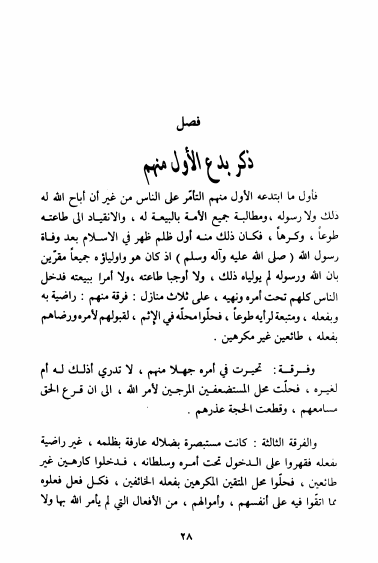 فصل
ذكر بدع الأول منهم
فأول ما ابتدعه الأول منهم التأمّر على الناس من غير أن أباح الله له
ذلك ولا رسوله ، ومطالبة جميع الأمة بالبيعة له ، والانقياد الى طاعته
طوعاً ، وكرهاً ، فكان ذلك منه أول ظلم ظهر في الاسلام بعد وفاة
رسول الله ( صلى الله عليه وآله وسلم ) اذ كان هو واولياؤه جميعاً مقرّين
بان الله ورسوله لم يولياه ذلك ، ولا أوجبا طاعته ، ولا أمرا ببيعته فدخل
الناس كلهم تحت أمره ونهيه ، على ثلاث منازل : فرقة منهم : راضية به
وبفعله ، ومتبعة لرأيه طوعاً ، فحلّوا محلّه في الإثم ، لقبولهم لأمره ورضاهم
بفعله ، طائعين غير مكرهين .
وفرقة : تحيرت في أمره جهلا منهم ، لا تدري أذلك له أم
لغيره ، فحلّت محل المستضعفين المرجين لأمر الله ، الى ان قرع الحق
مسامعهم ، وقطعت الحجة عذرهم .
والفرقة الثالثة : كانت مستبصرة بضلاله عارفة بظلمه ، غير راضية
بفعله فقهروا على الدخول تحت أمره وسلطانه ، فدخلوا كارهين غير
طائعين ، فحلّوا محل المتقين المكرهين بفعله الخائفين ، فكل فعل فعلوه
مما اتقوا فيه على أنفسهم ، وأموالهم ، من الأفعال التي لم يأمر الله بها ولا
٢٨